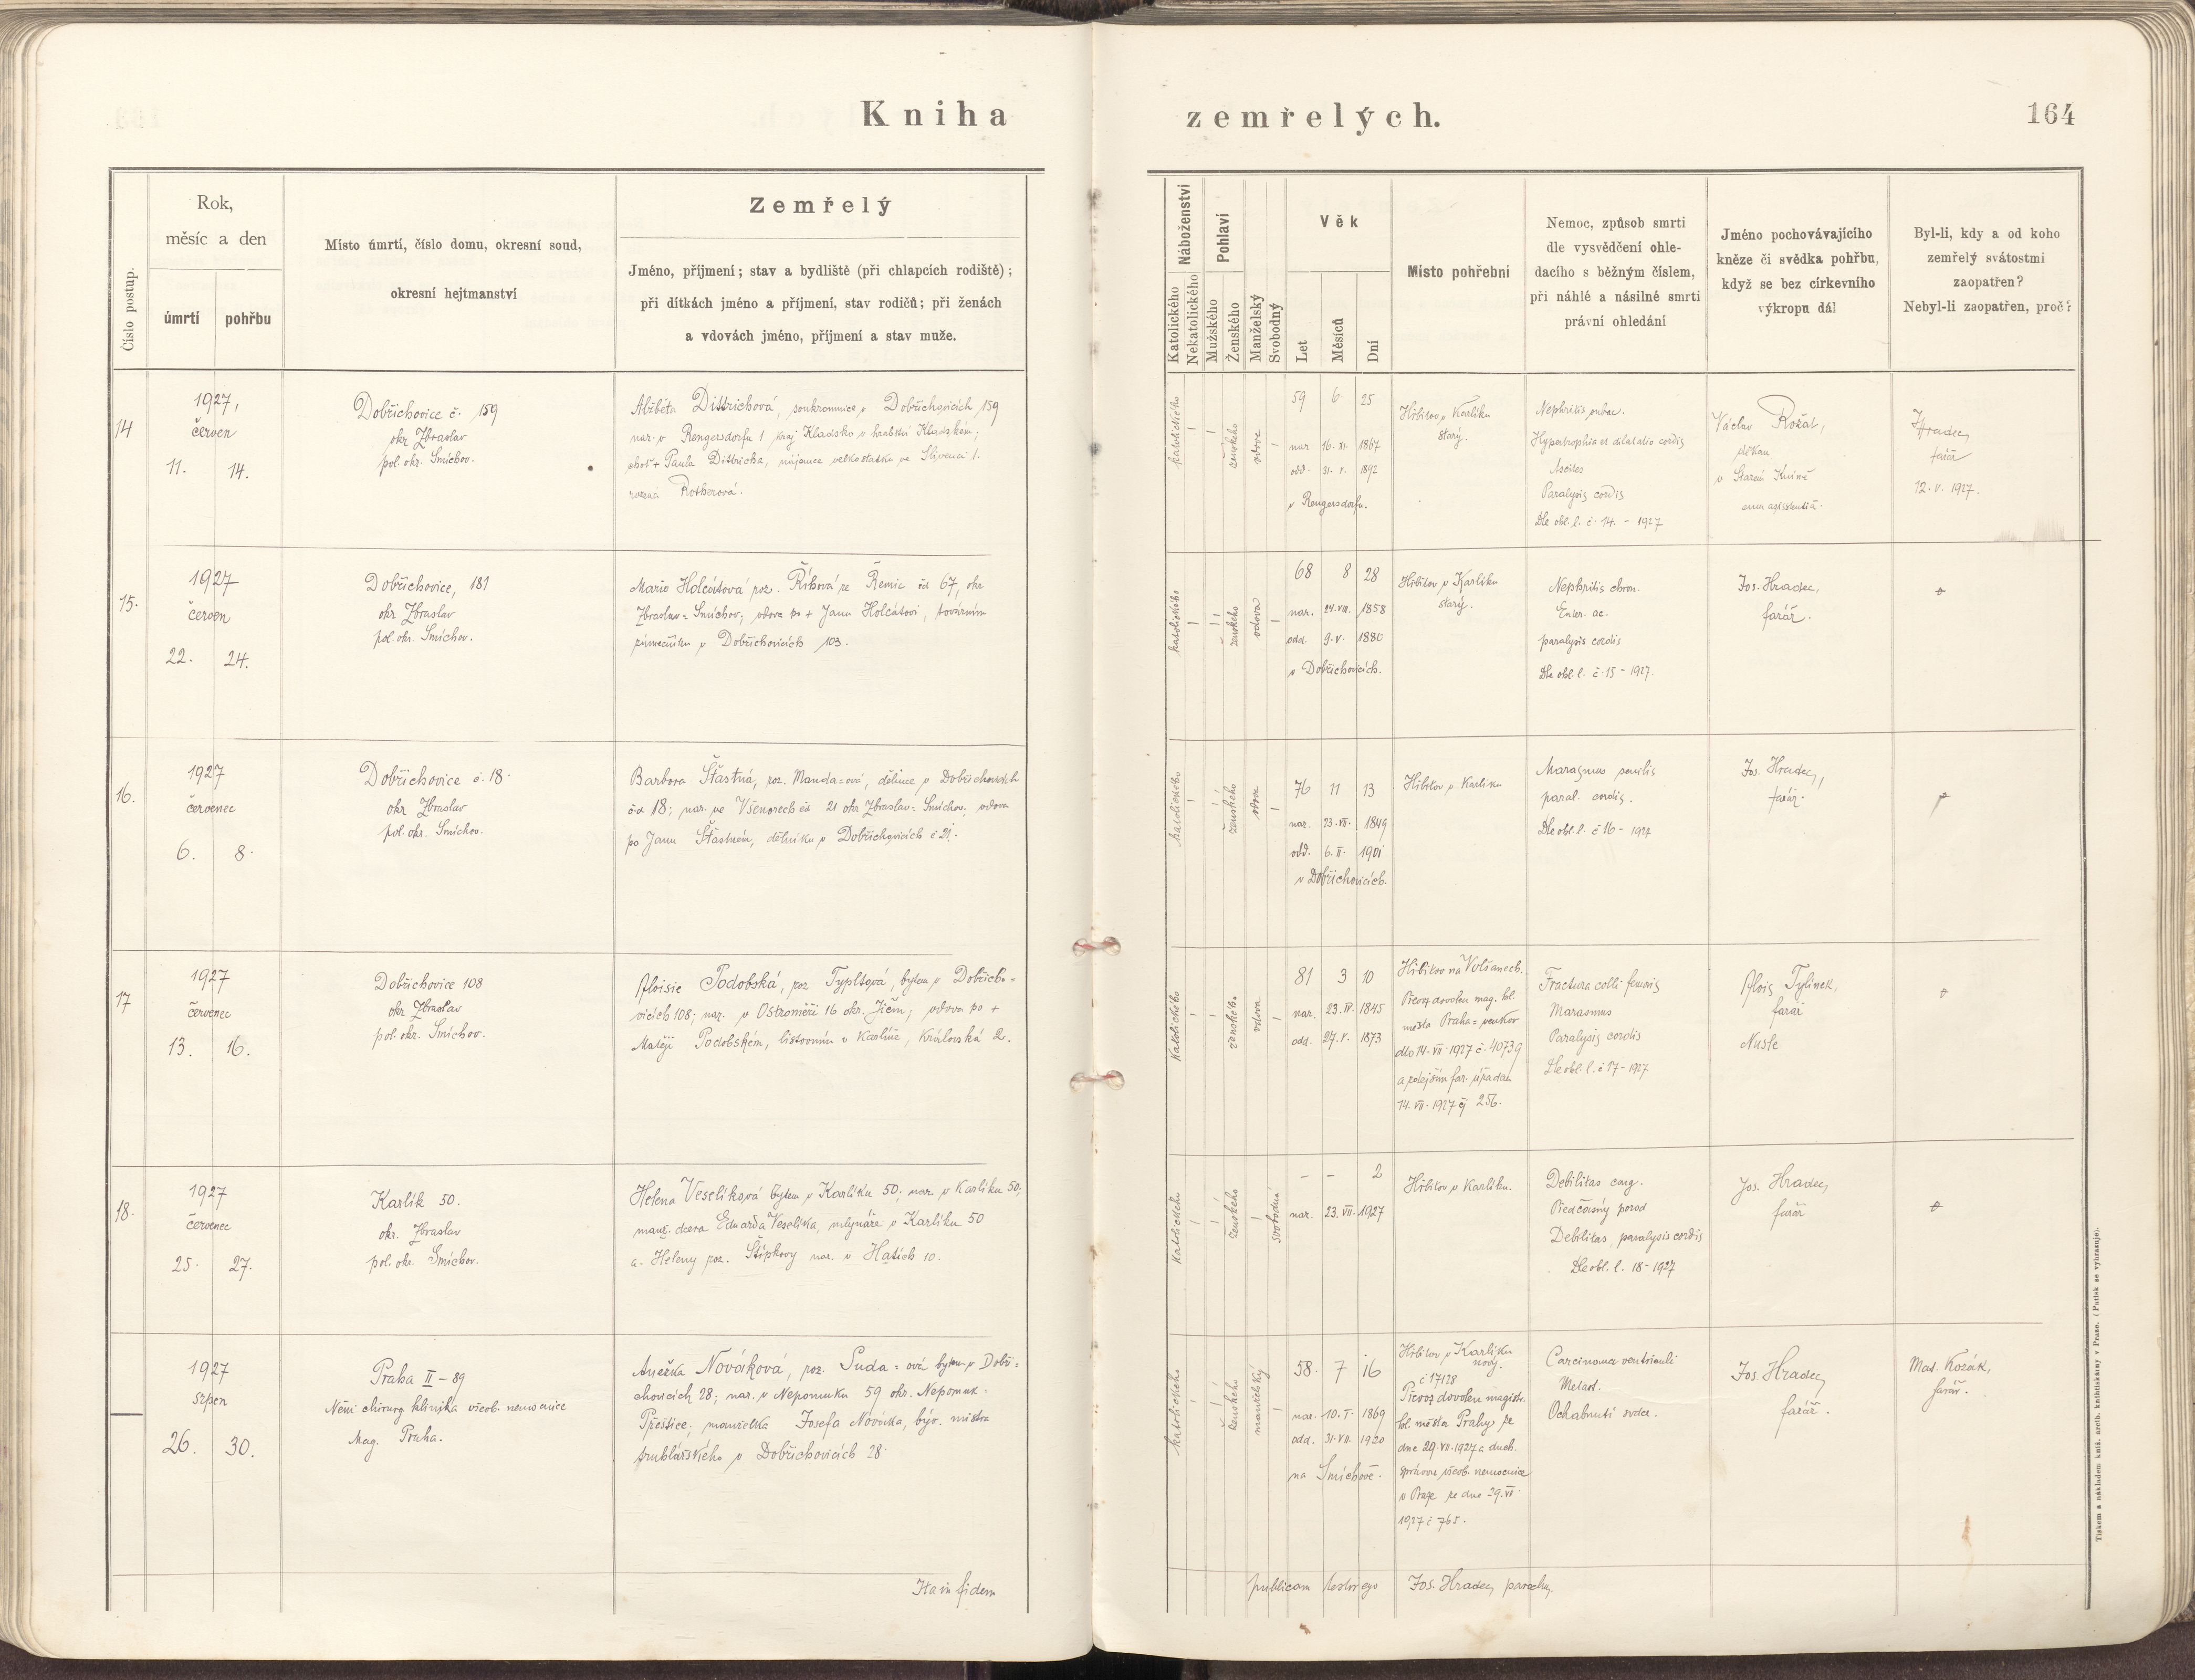 Kniha zemřelých.
164
Číslo postup.
Rok,
měsíc a den
úmrtí
pohřbu
Místo úmrtí, číslo domu, okresní soud,
okresní hejtmanství
Zemřelý
Jméno, příjmení; stav a bydliště (při chlapcích rodiště);
při dítkách jméno a příjmení, stav rodičů; při ženách
a vdovách jméno, příjmení a stav muže.
Náboženství
Katolického
Nekatolického
Pohlaví
Mužského
Ženského
Manželský
Svobodný
Věk
Let
Měsíců
Dní
Místo pohřební
Nemoc, způsob smrti
dle vysvědčení ohle-
dacího s běžným číslem,
při náhlé a násilné smrti
právní ohledání
Jméno pochovávajícího
kněze či svědka pohřbu,
když se bez církevního
výkropu dál
Byl-li, kdy a od koho
zemřelý svátostmi
zaopatřen?
Nebyl-li zaopatřen, proč?
14
1927,
červen
11. 14.
Dobřichovice č. 159
okr Zbraslav
pol. okr. Smíchov.
Alžběta Dittrichová, soukromnice v Dobřichovicích 159
nar. v Rengersdorfu 1 kraj Kladsko v hrabství Kladském;
choť + Paula Dittricha, nájemce velkostatku ve Slivenci 1.
rozená Rotherová.
katolického
ženského
vdova
59 6 25
nar 16. XI. 1867
odd. 31. V. 1892
v Rengersdorfu.
Hřbitov v Karlíku
starý.
Nephritis
Hypertrophia et dilatatio cordis
Ascites
Paralysis cordis
Dle obl. l. č. 14. - 1927
Václav Rožát,
děkan
v Starém Kníně
cum assistentiâ.
Hradec,
farář
12. V. 1927.
15.
1927
červen
22. 24.
Dobřichovice, 181
okr. Zbraslav
pol. okr. Smíchov.
Marie Holcátová roz. Říhová ze Řemic čd 67, okr
Zbraslav-Smíchov, vdova po + Janu Holcátovi, továrním
zámečníku v Dobřichovicích 103.
katolického
ženského
vdova
68 8 28
nar. 24. VIII. 1858
odd. 9. V. 1880
v Dobřichovicích.
Hřbitov v Karlíku
starý.
Nephritis chron.
Enter. ac.
paralysis cordis
Dle obl. l. č. 15 - 1927.
Jos. Hradec,
farář.
16.
1927
červenec
6. 8.
Dobřichovice č. 18.
okr Zbraslav
pol. okr. Smíchov.
Barbora Šťastná, roz. Manda-ová, dělnice v Dobřichovicích
č-d 18; nar. ve Všenorech čd 21 okr Zbraslav-Smíchov, vdova
po Janu Šťastném, dělníku v Dobřichovicích č 21.
katolického
ženského
vdova
76 11 13
nar. 23. VII. 1849
odd. 6. II. 1901
v Dobřichovicích.
Hřbitov v Karlíku
Marasmus senilis
paral. cordis.
Dle obl. l. č 16 - 1927
Jos. Hradec,
farář.
17
1927
červenec
13. 16.
Dobřichovice 108
okr Zbraslav
pol. okr. Smíchov.
Aloisie Podobská, roz Typltová, bytem v Dobřicho-
vicích 108; nar. v Ostroměři 16 okr. Jičín; vdova po +
Matěji Podobském, listovním v Karlíně, Královská 2.
Katolického
ženského
vdova
81 3 10
nar. 23. IV. 1845
odd. 27. V. 1873
Hřbitov na Volšanech.
Převoz dovolen mag. hl.
města Praha-venkov
dto 14. VII. 1927 č. 40739
a zdejším far. úřadem
14. VII. 1927 čj 256.
Fractura colli femoris
Marasmus
Paralysis cordis
Dle obl. l. č 17 - 1927
Alois Tylínek,
farář
Nusle
18.
1927
červenec
25. 27.
Karlík 50.
okr. Zbraslav
pol. okr. Smíchov.
Helena Veselíková bytem v Karlíku 50; nar. v Karlíku 50;
manž. dcera Eduarda Veselíka, mlynáře v Karlíku 50
a Heleny roz. Štípkovy nar. v Hatích 10.
katolického
ženského
svobodná
- - 2
nar. 23. VII. 1927
Hřbitov v Karlíku.
Debilitas cong.
Předčasný porod
Debilitas, paralysis cordis
Dle obl. l. 18 - 1927
Jos. Hradec,
farář
1927
srpen
26. 30.
Praha II - 89
Něm. chirurg klinika všeob. nemocnice
Mag. Praha.
Anežka Nováková, roz. Suda-ová bytem v Dobř-
chovicích 28; nar. v Nepomuku 59 okr. Nepomuk-
Přeštice; manželka Josefa Nováka, býv. mistra
truhlářského v Dobřichovicích 28
katolického
ženského
manželský
58. 7 16
nar. 10. I. 1869
odd. 31. VII. 1920
na Smíchově.
Hřbitov v Karlíku
nový.
č 17128
Převoz dovolen magistr.
hl. města Prahy ze
dne 29. VII. 1927 a duch.
správou všeob. nemocnice
v Praze ze dne 29. VII.
1927 č 765.
Carcinoma ventriculi
Metast.
Ochabnutí srdce.
Jos. Hradec,
farář.
Mat. Kozák,
farář.
Ita in fidem publicam testor ego Jos. Hradec, parochus.
Tiskem a nákladem kníž. arcib. knihtiskárny v Praze. (Patisk se vyhrazuje).